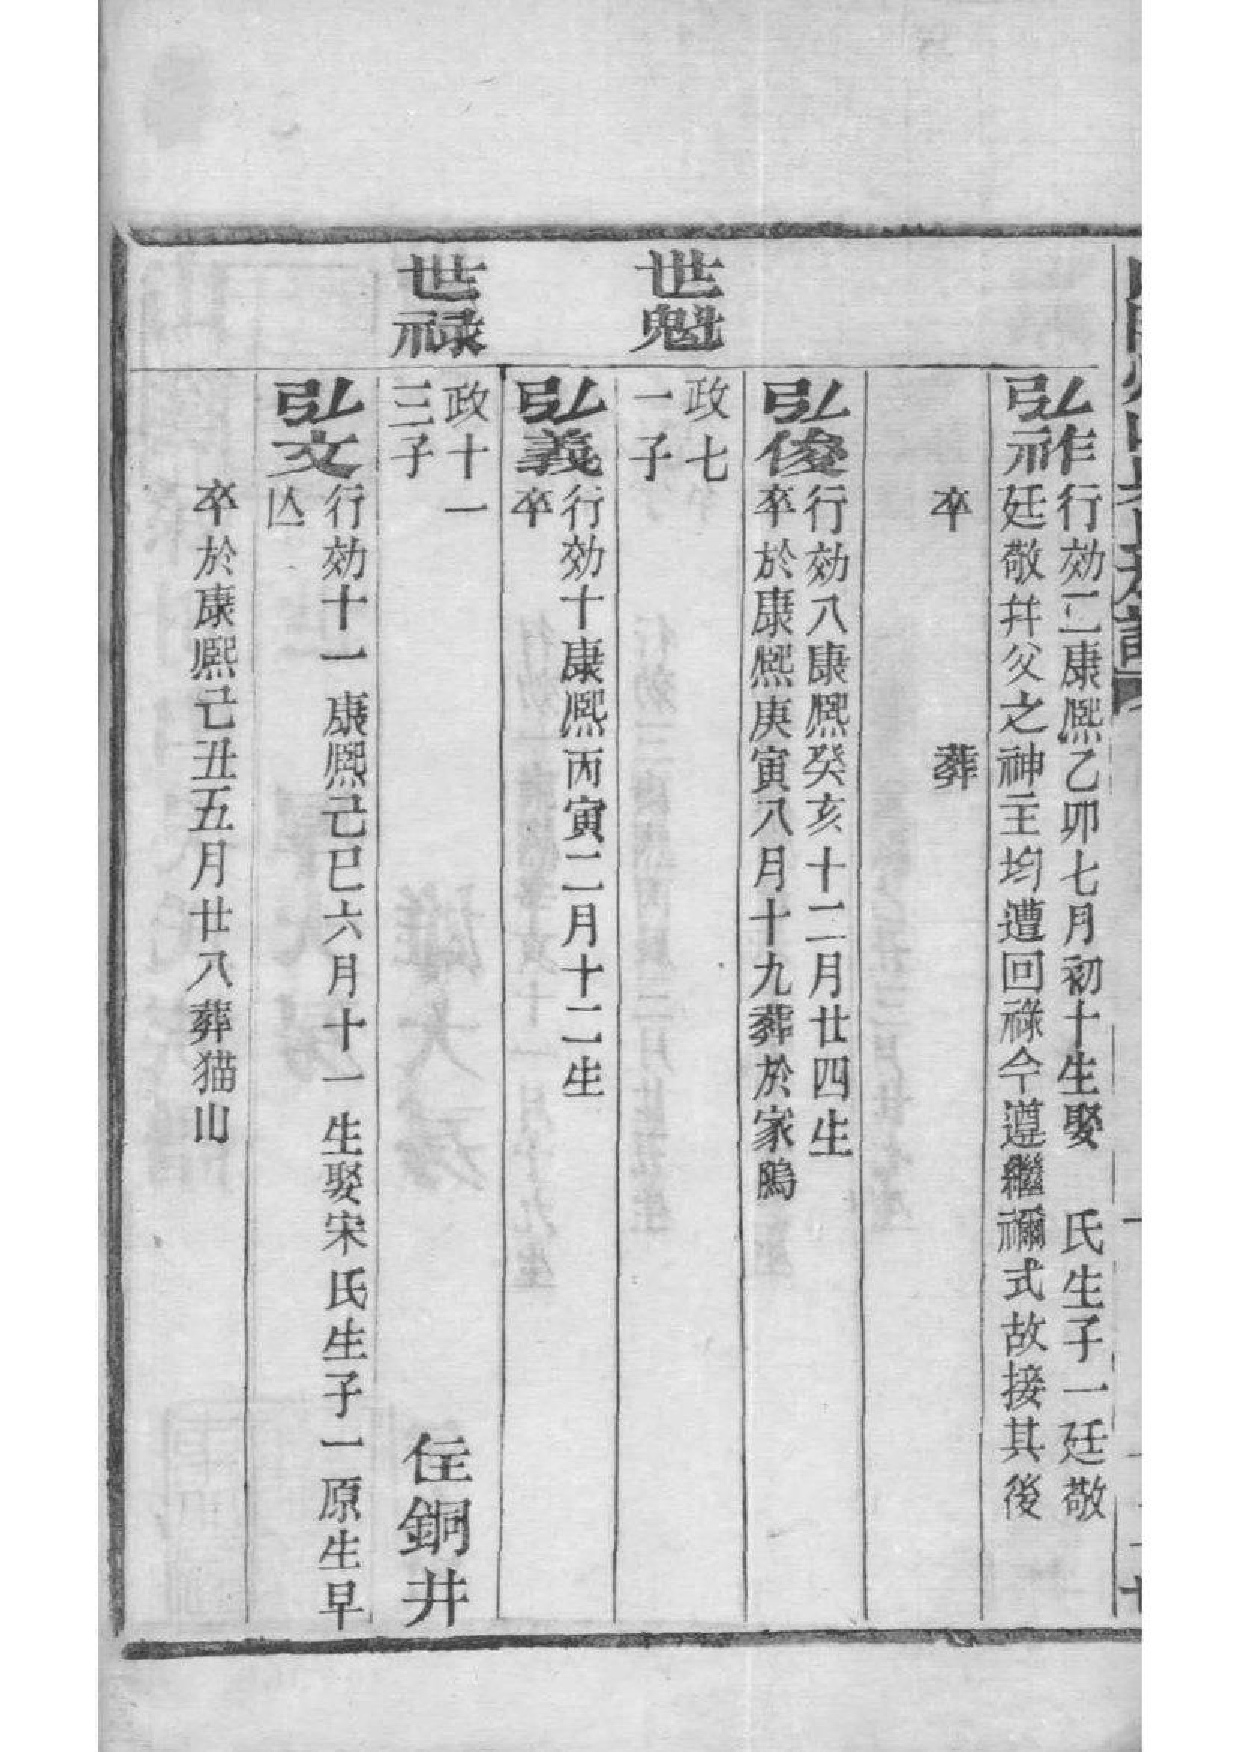 弘祚
行効二康熙乙卯七月初十生娶　氏生子一廷敬
廷敬幷父之神主均遭回祿今遵繼禰式故接其後
卒　葬
弘俊
行効八康熙癸亥十二月廿四生
卒於康熙庚寅八月十九葬於家鵰
世魁
政七
一子
弘義
行効十康熙丙寅二月十二生
卒
世祿
政十一
三子
住銅井
弘文
行効十一康熙己巳六月十一生娶宋氏生子一原生早
亾
卒於康熙己丑五月廿八葬猫山